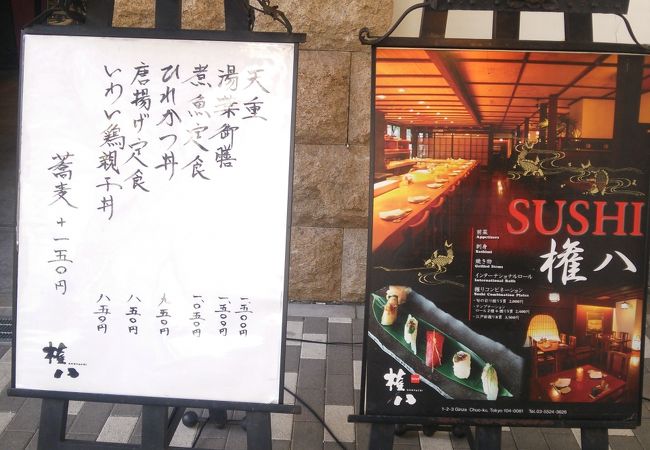 天重
湯葉御膳
煮魚定食
ひれかつ丼
唐揚げ定食
いわい鶏親子丼
蕎麦 + 一五〇円
一五〇〇
一五〇〇
一〇五〇
八五〇
八五〇
権八
GONPACHI
SUSHI
権八
前菜
Appetizers
刺身
Sashimi
焼き物
Grilled Items
インターナショナルロール
International Rolls
握りコンビネーション
Sushi Combination Plates
1-2-3 Ginza Chuo-ku, Tokyo 104-0061 Tel.03-5524-3626
権八